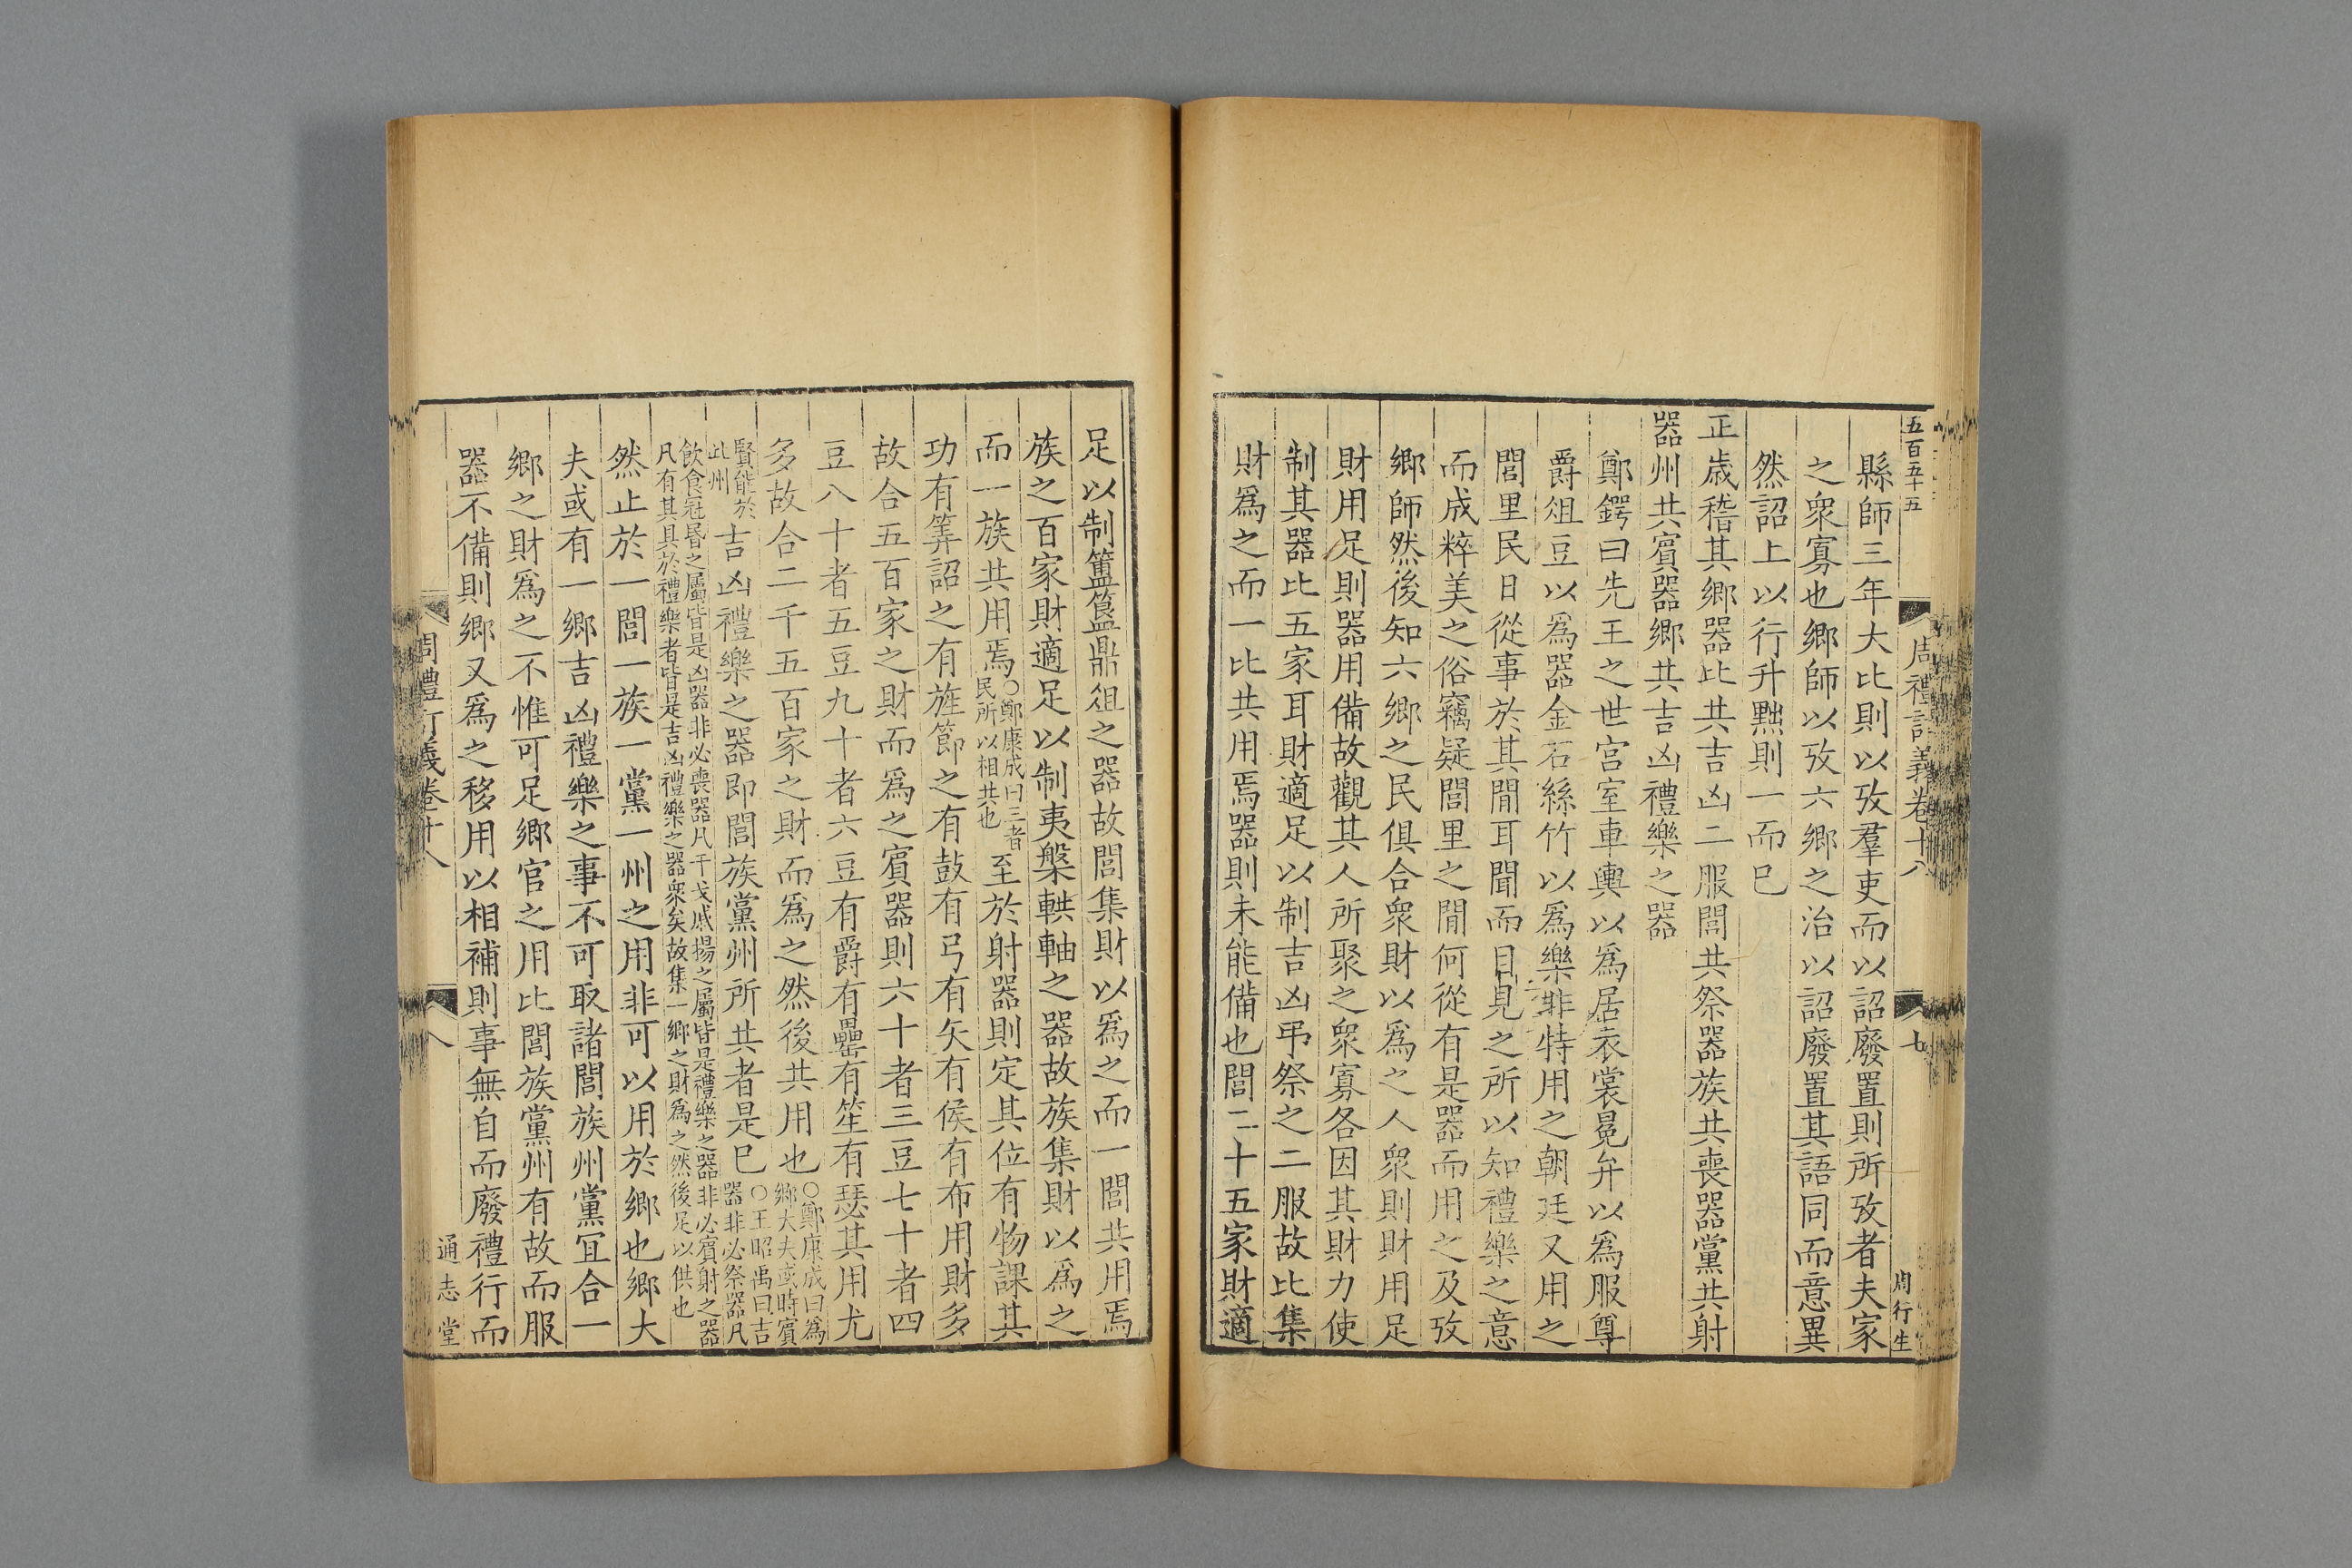 五百五十五
周禮訂義卷十八
七
周行生
縣師三年大比則以攷羣吏而以詔廢置則所攷者夫家
之衆寡也鄉師以攷六鄉之治以詔廢置其語同而意異
然詔上以行升黜則一而已
正歲稽其鄉器比共吉凶二服閭共祭器族共喪器黨共射
器州共賓器鄉共吉凶禮樂之器
鄭鍔曰先王之世宫室車輿以爲居衣裳冕弁以爲服尊
爵俎豆以爲器金石絲竹以爲樂非特用之朝廷又用之
閭里民日從事於其閒耳聞而目見之所以知禮樂之意
而成粹美之俗竊疑閭里之閒何從有是器而用之及攷
鄉師然後知六鄉之民俱合衆財以爲之人衆則財用足
財用足則器用備故觀其人所聚之衆寡各因其財力使
制其器比五家耳財適足以制吉凶弔祭之二服故比集
財爲之而一比共用焉器則未能備也閭二十五家財適
足以制簠簋鼎俎之器故閭集財以爲之而一閭共用焉
族之百家財適足以制夷槃輁軸之器故族集財以爲之
而一族共用焉○鄭康成曰三者民所以相共也至於射器則定其位有物課其
功有筭詔之有旌節之有鼓有弓有矢有侯有布用財多
故合五百家之財而爲之賓器則六十者三豆七十者四
豆八十者五豆九十者六豆有爵有罍有笙有瑟其用尤
多故合二千五百家之財而爲之然後共用也○鄭康成曰爲鄉大夫或時賓
賢能於此州吉凶禮樂之器即閭族黨州所共者是已○王昭禹曰吉器非必祭器凡
飲食冠昬之屬皆是凶器非必喪器凡干戈戚揚之屬皆是禮樂之器非必賓射之器
凡有其具於禮樂者皆是吉凶禮樂之器衆矣故集一鄉之財爲之然後足以供也
然止於一閭一族一黨一州之用非可以用於鄉也鄉大
夫或有一鄉吉凶禮樂之事不可取諸閭族州黨宜合一
鄉之財爲之不惟可足鄉官之用比閭族黨州有故而服
器不備則鄉又爲之移用以相補則事無自而廢禮行而
周禮訂義卷十八
八
通志堂